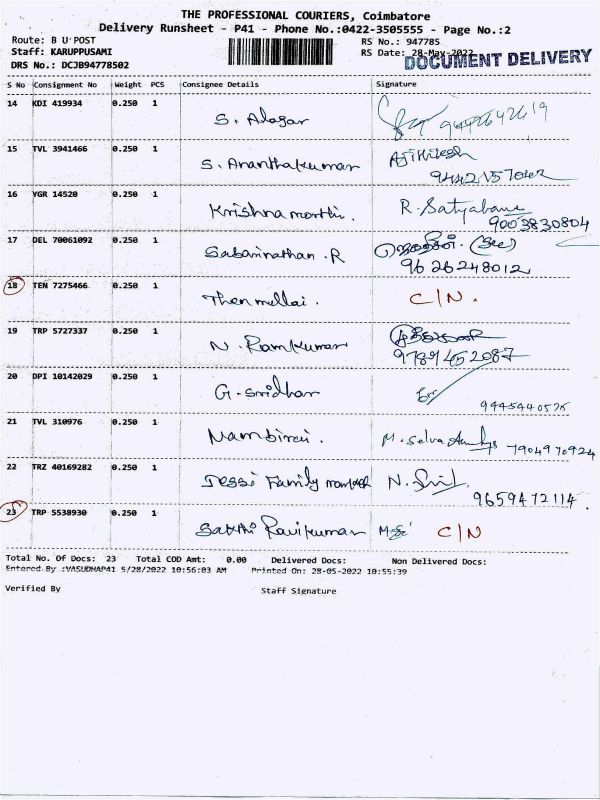 THE PROFESSIONAL COURIERS, Coimbatore
Delivery Runsheet - P41 - Phone No.:0422-3505555 - Page No.:2
Route: B U POST
RS No.: 947785
Staff: KARUPPUSAMI
RS Date: 28-May-2022
DOCUMENT DELIVERY
DRS No.: DCJB94778502
S No Consignment No Weight PCS Consignee Details Signature
14 KDI 419934 0.250 1 S. Alagar 9442642619
15 TVL 3941466 0.250 1 S. Ananthakumar
16 YGR 14520 0.250 1 Krishna morthi. R. Satyabama
9003830804
17 DEL 70061092 0.250 1 Sabarinathan .R
9626248012
18 TEN 7275466 0.250 1 Then mullai . C/N.
19 TRP 5727337 0.250 1 N. Ramkumar
9789452087
20 DPI 10142029 0.250 1 G. Sridhar
21 TVL 310976 0.250 1 Nambirai . 7904970924
22 TRZ 40169282 0.250 1 Dessi Family
9659472114
23 TRP 5538930 0.250 1 Sakthi Ravikumar C/N
Total No. Of Docs: 23 Total COD Amt: 0.00 Delivered Docs: Non Delivered Docs:
Entered By :VASUDHAP41 5/28/2022 10:56:03 AM Printed On: 28-05-2022 10:55:39
Verified By Staff Signature